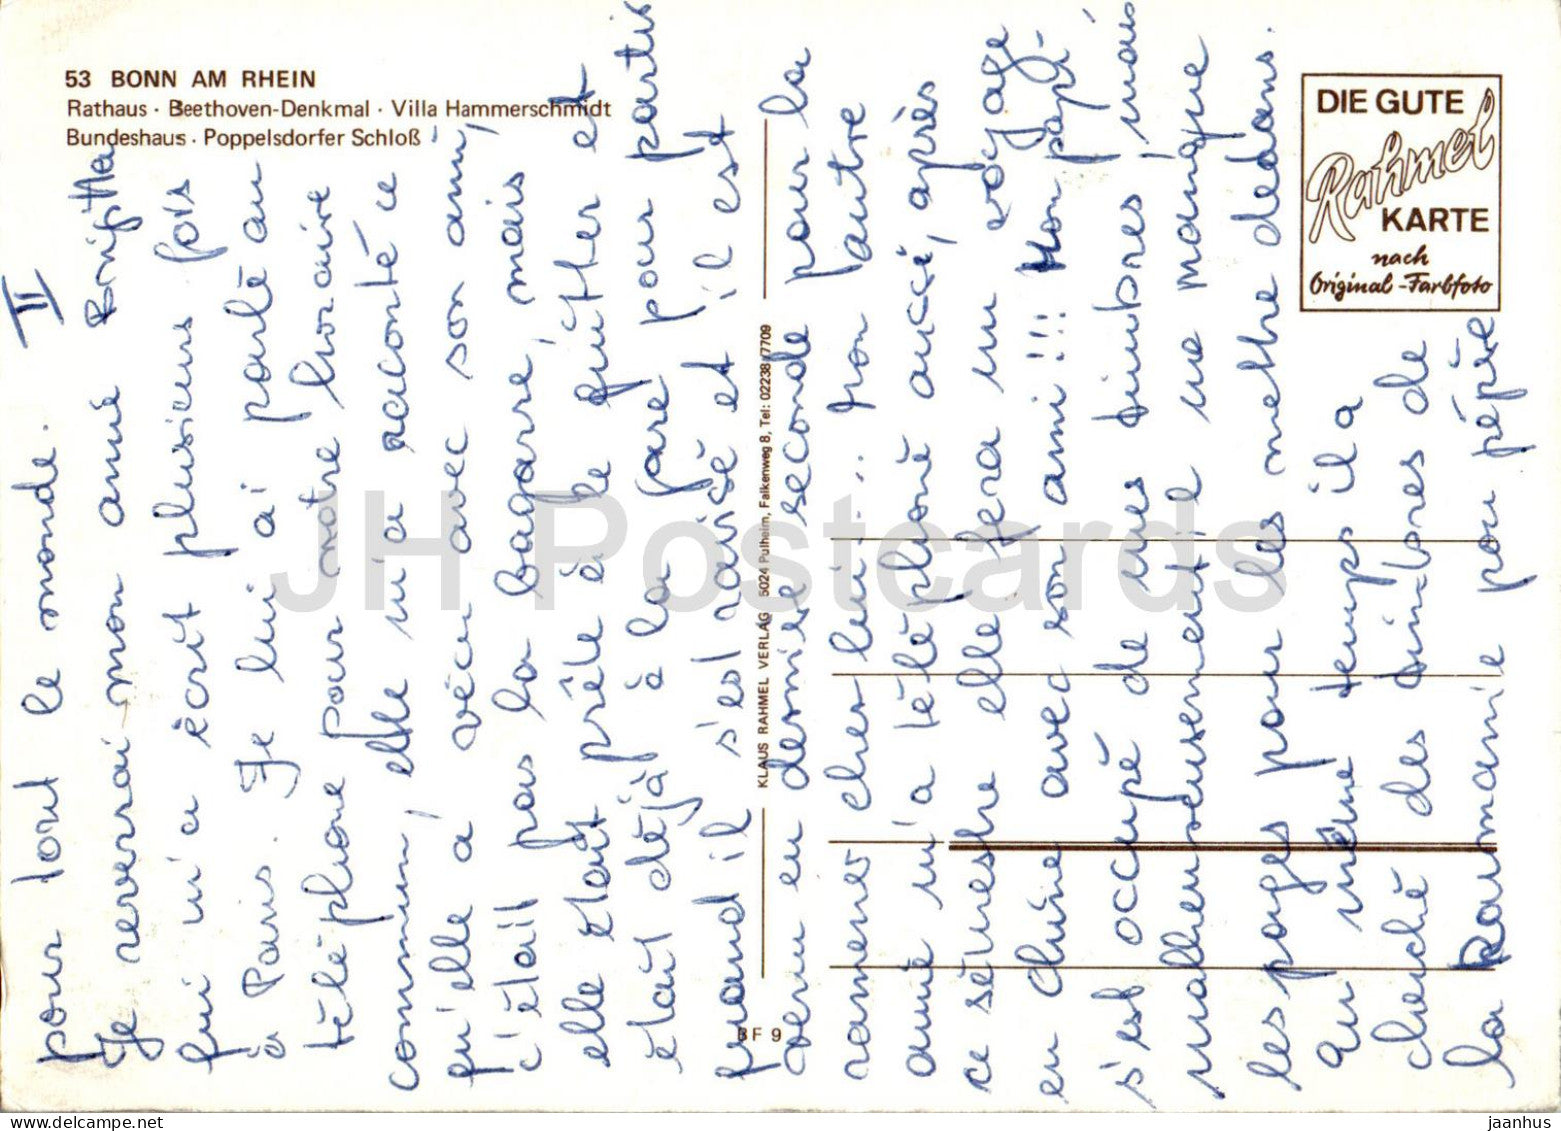 53 BONN AM RHEIN
Rathaus · Beethoven-Denkmal · Villa Hammerschmidt
Bundeshaus · Poppelsdorfer Schloß
DIE GUTE
Rahmel
KARTE
nach
Original-Farbfoto
KLAUS RAHMEL VERLAG 5024 Pulheim, Falkenweg 8, Tel: 02238/7709
BF 9
II
pour tout le monde.
Je reverrai mon amie Brigitta
qui m'a écrit plusieurs fois
à Paris. Je lui ai parlé au
téléphone pour notre horaire
commun, elle m'a raconté ce
qu'elle a vécu avec son ami,
c'était pas la bagarre, mais
elle était prête à le quitter et
était déjà à la gare pour partir
quand il s'est ravisé et il est
venu en dernière seconde pour la
ramener chez lui... Mon autre
amie m'a téléphoné aussi, après
ce semestre elle fera un voyage
en Chine avec son ami!!! Mon papi
s'est occupé de mes timbres, mais
malheureusement il me manque
les pages pour les mettre dedans.
Au même temps il a
cherché des timbres de
la Roumanie pou pépère
JH Postcards
jaanhus